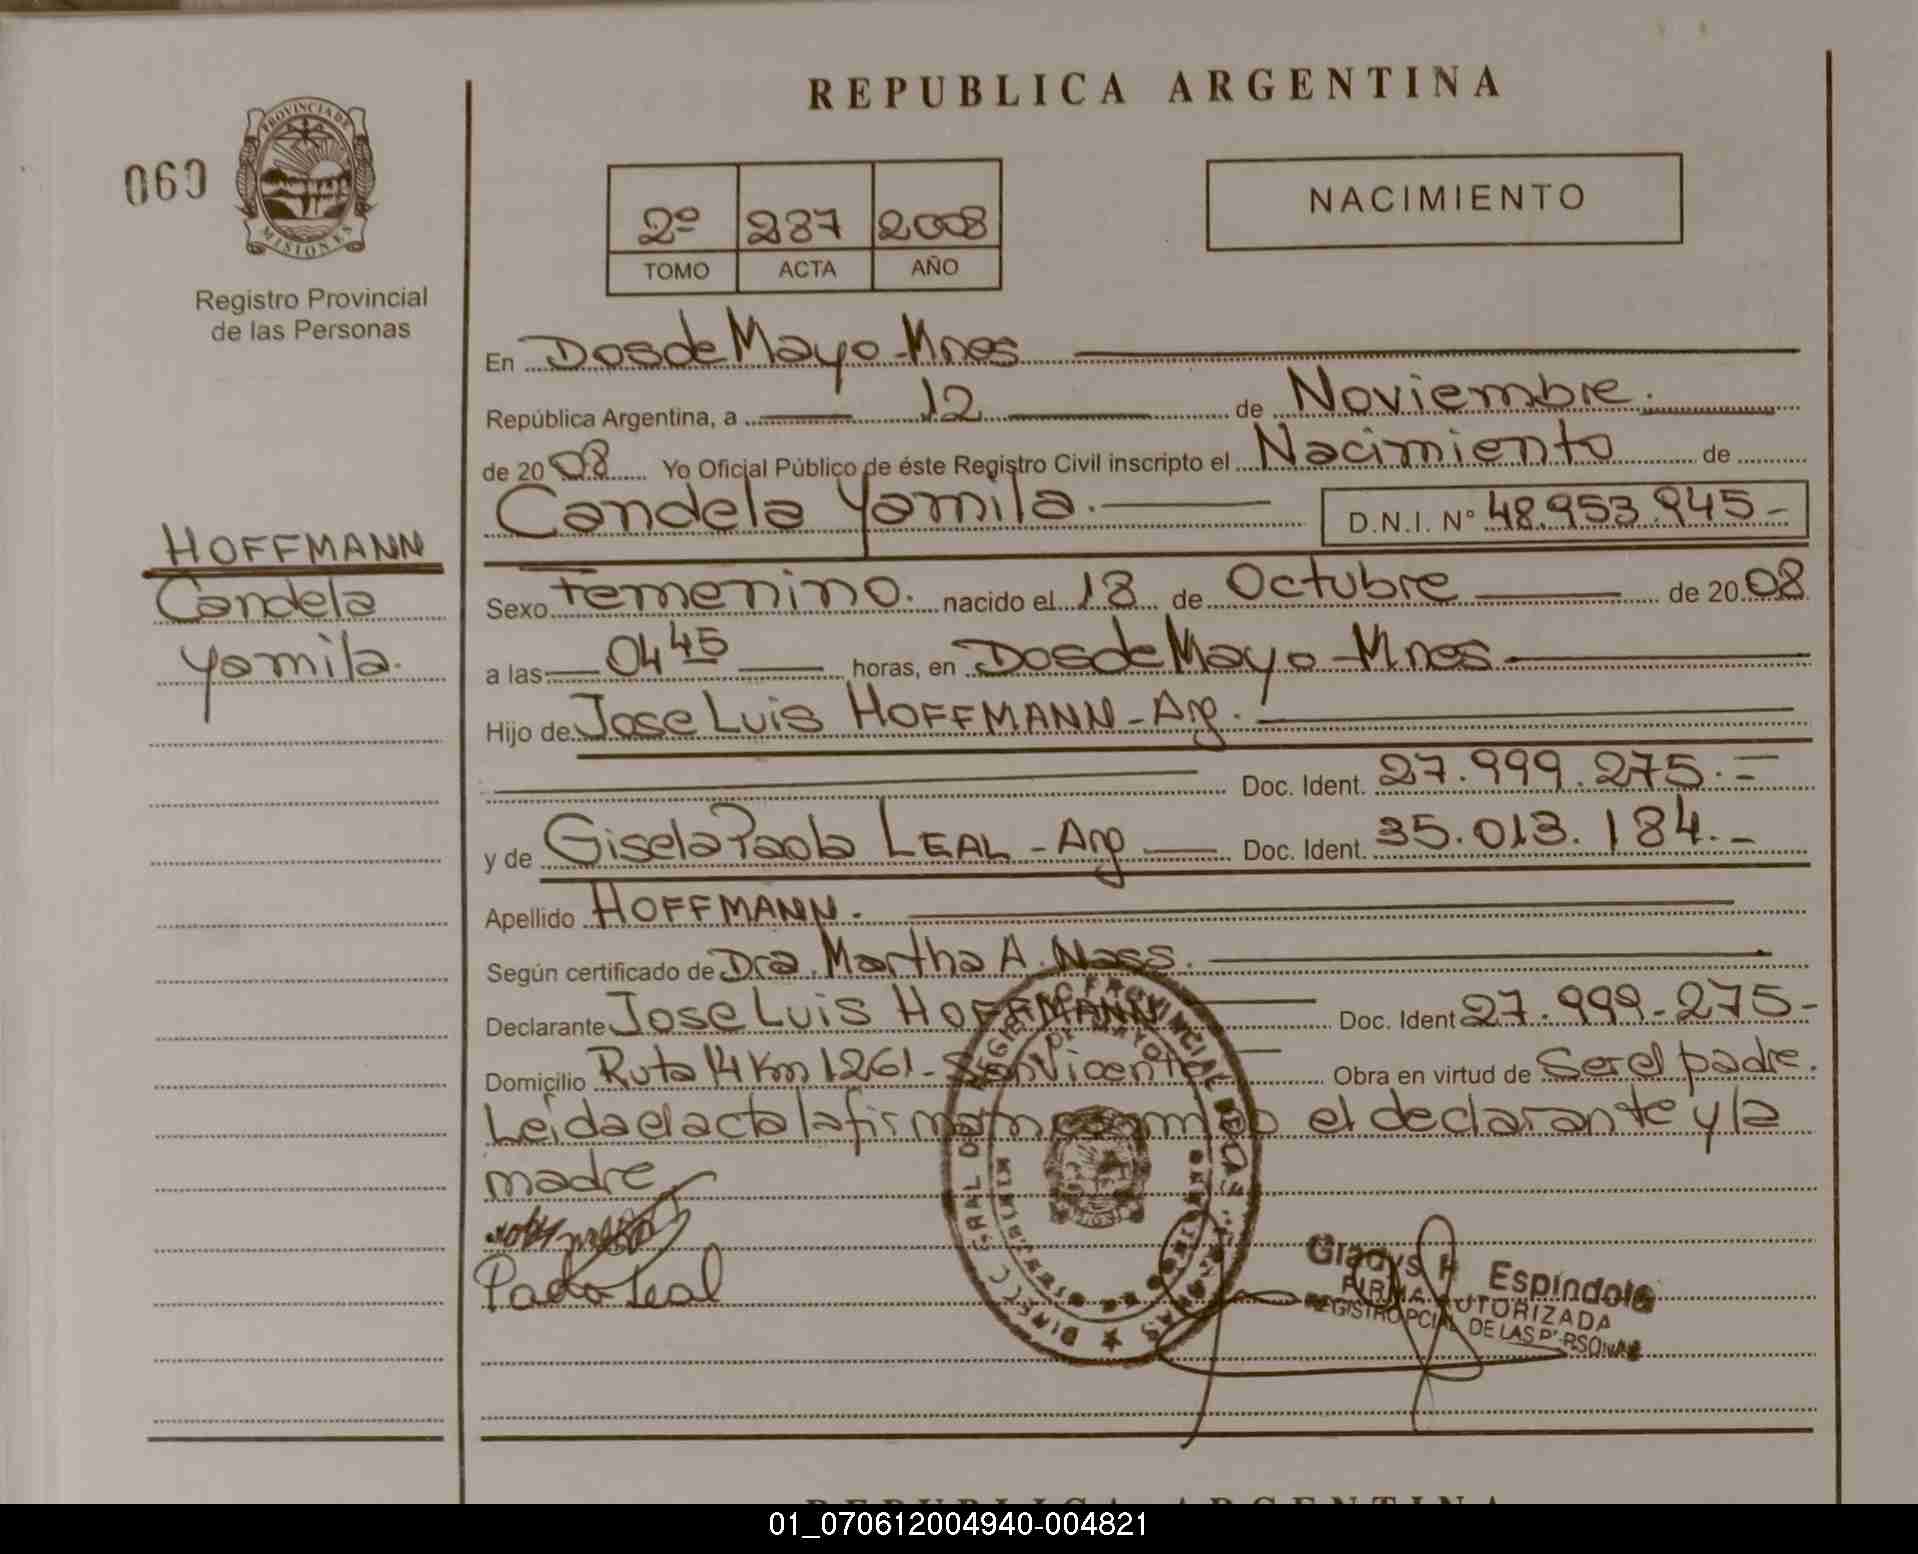 REPUBLICA ARGENTINA
060
PROVINCIA DE
MISIONES
Registro Provincial
de las Personas
2º 287 2008
TOMO ACTA AÑO
NACIMIENTO
HOFFMANN
Candela
Yamila.
En Dos de Mayo - Mnes
República Argentina, a 12 de Noviembre.
de 2008 Yo Oficial Público de éste Registro Civil inscripto el Nacimiento de
Candela Yamila. D.N.I. Nº 48.953.945-
Sexo Femenino. nacido el 18 de Octubre de 2008
a las 04 45 horas, en Dos de Mayo - Mnes
Hijo de Jose Luis HOFFMANN - Arg.
Doc. Ident. 27.999.275.=
y de Gisela Paola LEAL - Arg Doc. Ident. 35.013.184.-
Apellido HOFFMANN.
Según certificado de Dra. Martha A. Nass.
Declarante Jose Luis HOFFMANN Doc. Ident 27.999.275-
Domicilio Ruta 14 Km 1261 - San Vicente Obra en virtud de Ser el padre.
Leida el acta la firman conmigo el declarante y la
madre
Paola Leal
Gladys H Espindola
FIRMA AUTORIZADA
REGISTRO PCIAL DE LAS PERSONAS
REPUBLICA ARGENTINA
01_070612004940-004821